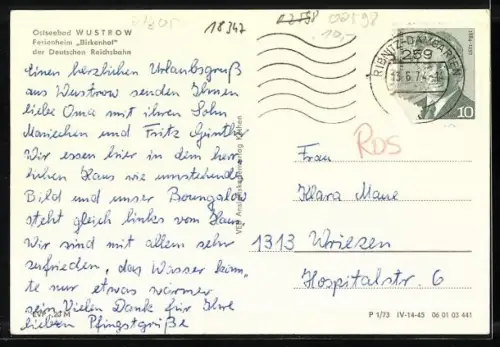 18347
Ostseebad WUSTROW
Ferienheim „Birkenhof"
der Deutschen Reichsbahn
Einen herzlichen Urlaubsgruß
aus Wustrow senden Ihnen
liebe Oma mit ihren Sohn
Mariechen und Fritz
Wir essen hier in dem herr
lichen Haus wie umstehendes
Bild und unser Boungalow
steht gleich links vom Haus
Wir sind mit allem sehr
zufrieden, das Wasser könn,
te nur etwas wärmer
sein Vielen Dank für Ihre
lieben Pfingstgrüße
EVP 0,20 M
VEB
RIBNITZ-DAMGARTEN
259
10
RDS
Frau
Klara Maue
1313 Wriezen
Hospitalstr. 6
P 1/73 IV-14-45 06 01 03 441